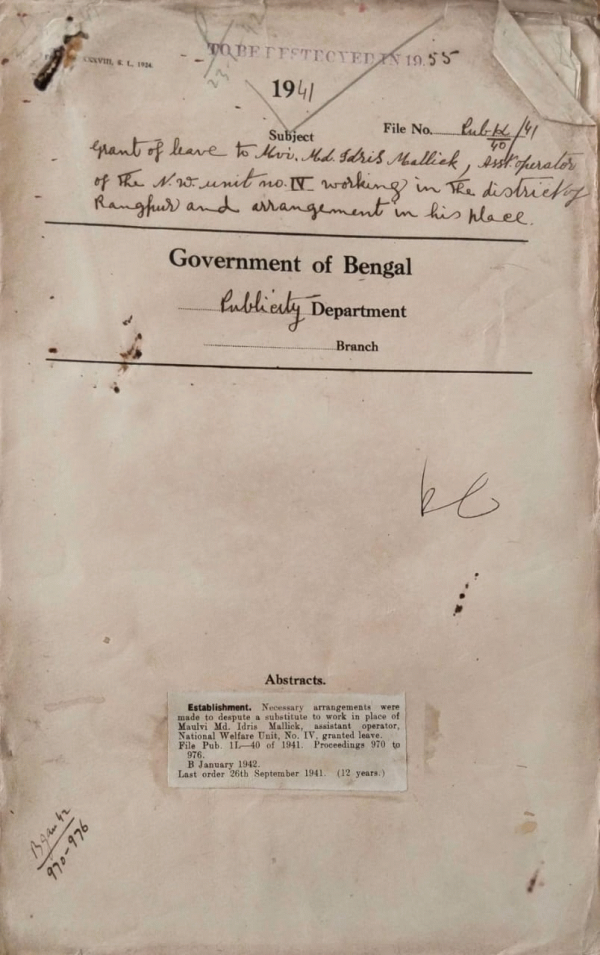 TO BE DESTROYED IN 1955
1941
Subject
File No. Pub
40 /41
Grant of leave to Mvi. Md. Idris Mallick, Asst. operator
of the N.W. unit no. IV working in the district of
Rangpur and arrangement in his place.
Government of Bengal
Publicity Department
Branch
Abstracts.
Establishment. Necessary arrangements were
made to despute a substitute to work in place of
Maulvi Md. Idris Mallick, assistant operator,
National Welfare Unit, No. IV, granted leave.
File Pub. 1L—40 of 1941. Proceedings 970 to
976.
B January 1942.
Last order 26th September 1941. (12 years.)
B Jan 42
970-976